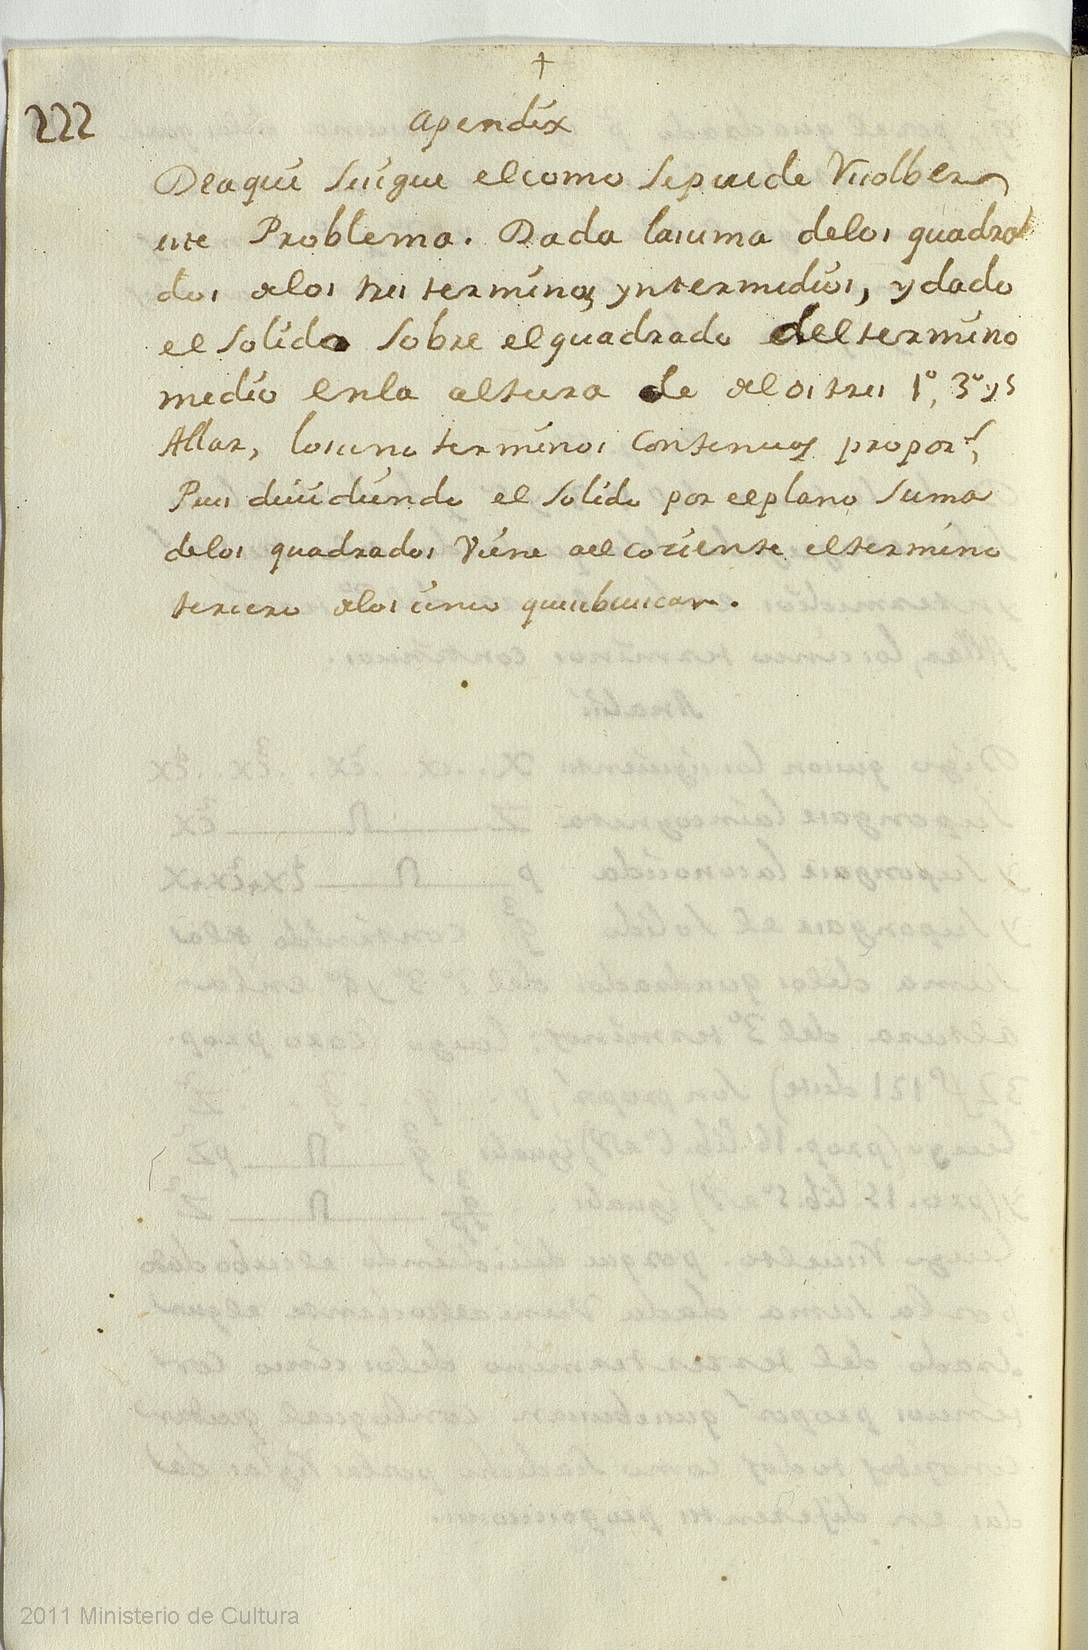 †
222
apendix
Deaqui sesigue elcomo sepuede Resolber
este Problema. Dada lasuma delos quadra
dos delos tres terminos yntermedios, y dado
el solido sobre elquadrado deltermino
medio enla altura de delos tres 1º, 3º y 5
Allar, loscinco terminos Continuos propor.s,
Pues diuidiendo el solido por elplano suma
delos quadrados Viene alcociente eltermino
tercero delos cinco quesebuscan.
2011 Ministerio de Cultura